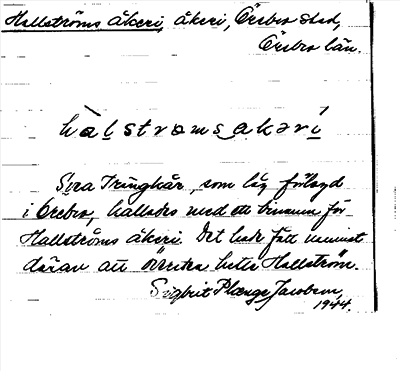 Hallströms åkeri, åkeri, Örebro stad,
Örebro län.
hàlstrømsakərì
Svea Trängkår, som låg förlagd
i Örebro, kallades med ett binamn för
Hallströms åkeri. Det hade fått namnet
därav att översten hette Hallström.
Sigbrit Plænge Jacobson,
1944.